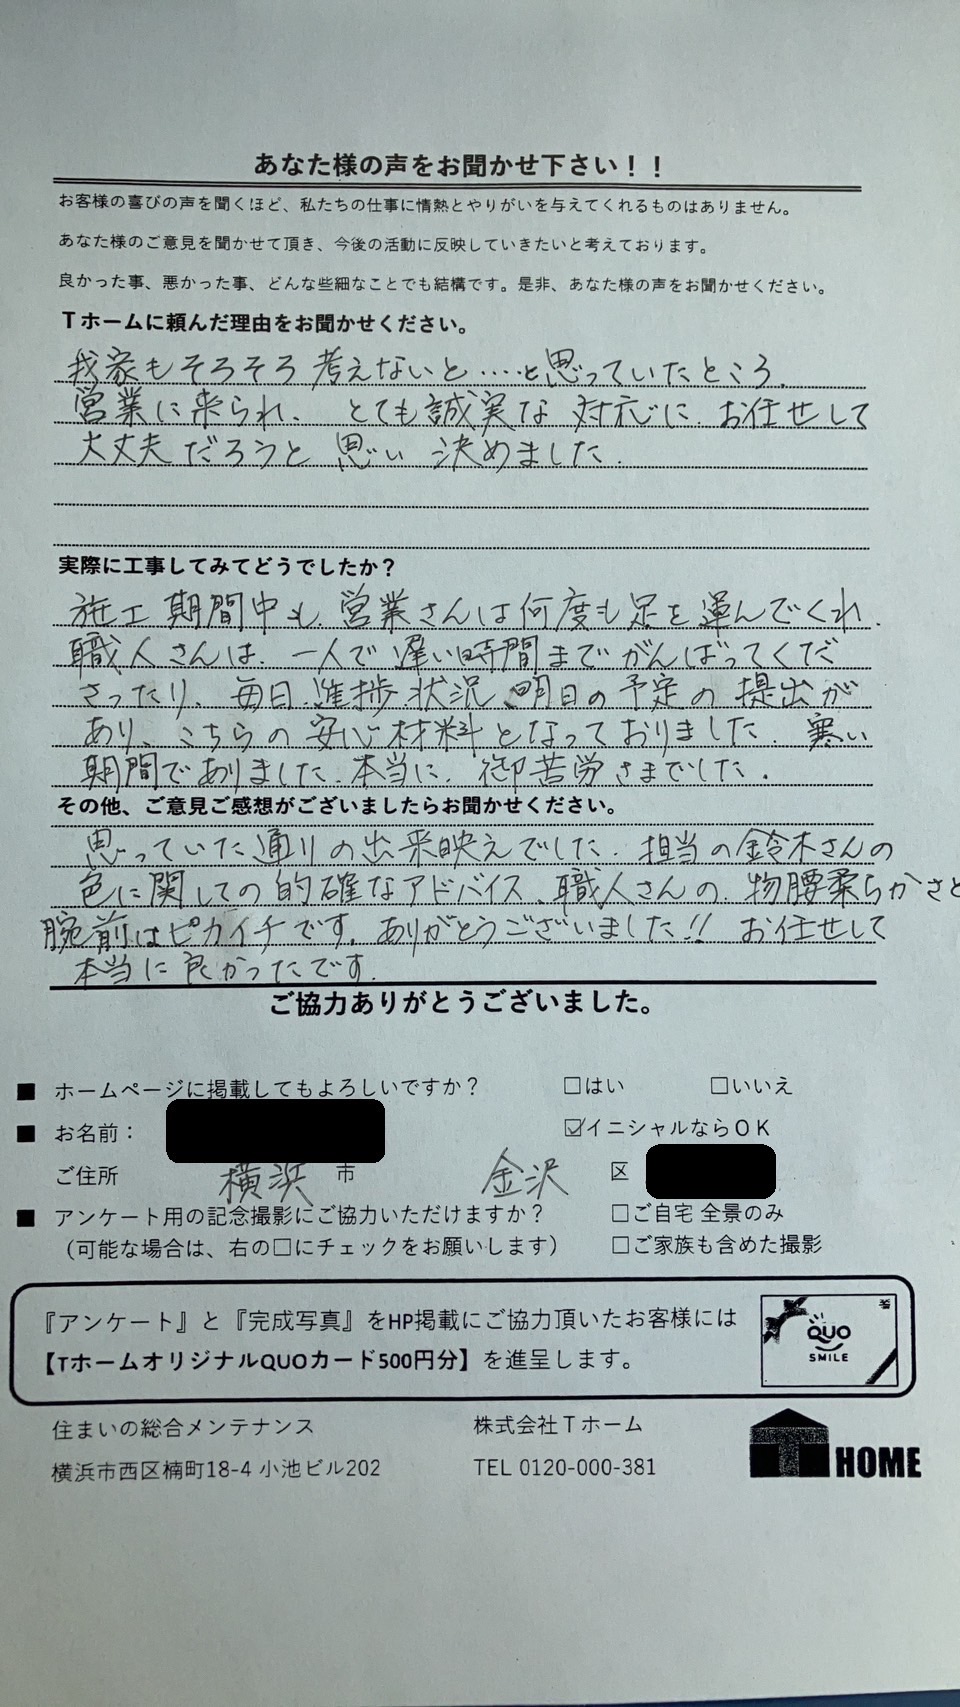 あなた様の声をお聞かせ下さい！！
お客様の喜びの声を聞くほど、私たちの仕事に情熱とやりがいを与えてくれるものはありません。
あなた様のご意見を聞かせて頂き、今後の活動に反映していきたいと考えております。
良かった事、悪かった事、どんな些細なことでも結構です。是非、あなた様の声をお聞かせください。
Tホームに頼んだ理由をお聞かせください。
我家もそろそろ考えないと‥‥と思っていたところ、
営業に来られ、とても誠実な対応に、お任せして
大丈夫だろうと思い決めました。
実際に工事してみてどうでしたか？
施工期間中も、営業さんは何度も足を運んでくれ、
職人さんは、一人で遅い時間までがんばってくだ
さったり、毎日、進捗状況、明日の予定の提出が
あり、こちらの安心材料となっておりました。寒い
期間でありました。本当に、御苦労さまでした。
その他、ご意見ご感想がございましたらお聞かせください。
思っていた通りの出来映えでした。担当の鈴木さんの
色に関しての的確なアドバイス、職人さんの、物腰柔らかさと
腕前はピカイチです。ありがとうございました!! お任せして
本当に良かったです。
ご協力ありがとうございました。
■ ホームページに掲載してもよろしいですか？ □はい □いいえ
■ お名前： ☑イニシャルならＯＫ
ご住所 横浜 市 金沢 区
■ アンケート用の記念撮影にご協力いただけますか？ □ご自宅 全景のみ
（可能な場合は、右の□にチェックをお願いします） □ご家族も含めた撮影
『アンケート』と『完成写真』をHP掲載にご協力頂いたお客様には
【TホームオリジナルQUOカード500円分】を進呈します。
QUO
SMILE
住まいの総合メンテナンス 株式会社Ｔホーム
横浜市西区楠町18-4 小池ビル202 TEL 0120-000-381
T HOME